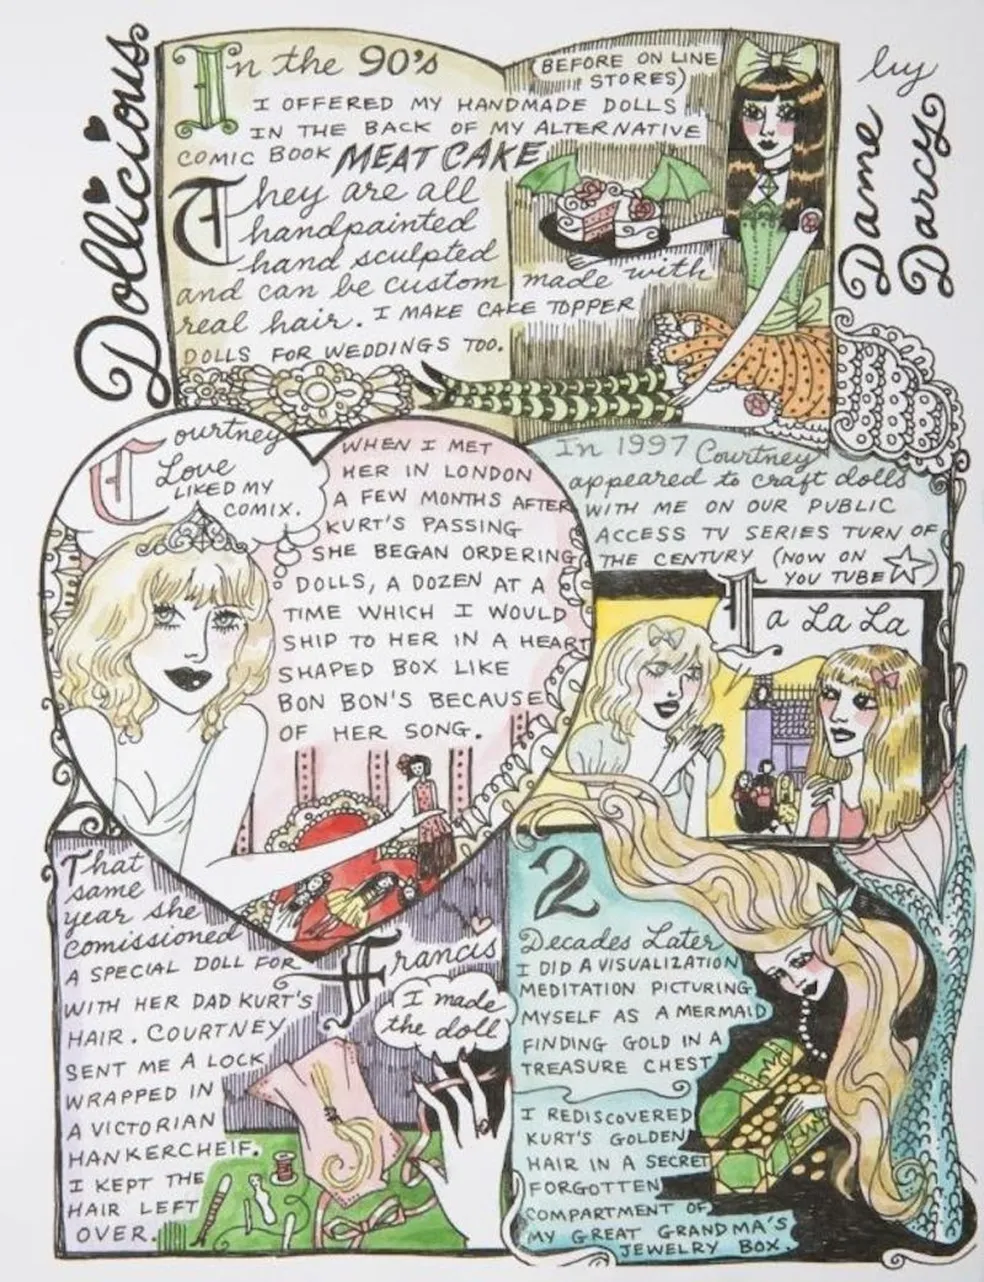 Dollicious
by
Dame
Darcy
In the 90's
(BEFORE ON LINE
STORES)
I OFFERED MY HANDMADE DOLLS
IN THE BACK OF MY ALTERNATIVE
COMIC BOOK MEAT CAKE
They are all
handpainted
hand sculpted
and can be custom made with
real hair. I MAKE CAKE TOPPER
DOLLS FOR WEDDINGS TOO.
Courtney
Love
LIKED MY
COMIX.
WHEN I MET
HER IN LONDON
A FEW MONTHS AFTER
KURT'S PASSING
SHE BEGAN ORDERING
DOLLS, A DOZEN AT A
TIME WHICH I WOULD
SHIP TO HER IN A HEART
SHAPED BOX LIKE
BON BON'S BECAUSE
OF HER SONG.
In 1997 Courtney
appeared to craft dolls
WITH ME ON OUR PUBLIC
ACCESS TV SERIES TURN OF
THE CENTURY (NOW ON
YOU TUBE)
La La La
That
same
year she
comissioned
A SPECIAL DOLL FOR Francis
WITH HER DAD KURT'S
HAIR. COURTNEY
SENT ME A LOCK
WRAPPED IN
A VICTORIAN
HANKERCHEIF.
I KEPT THE
HAIR LEFT
OVER.
I made
the doll
2
Decades Later
I DID A VISUALIZATION
MEDITATION PICTURING
MYSELF AS A MERMAID
FINDING GOLD IN A
TREASURE CHEST
I REDISCOVERED
KURT'S GOLDEN
HAIR IN A SECRET
FORGOTTEN
COMPARTMENT OF
MY GREAT GRANDMA'S
JEWELRY BOX.